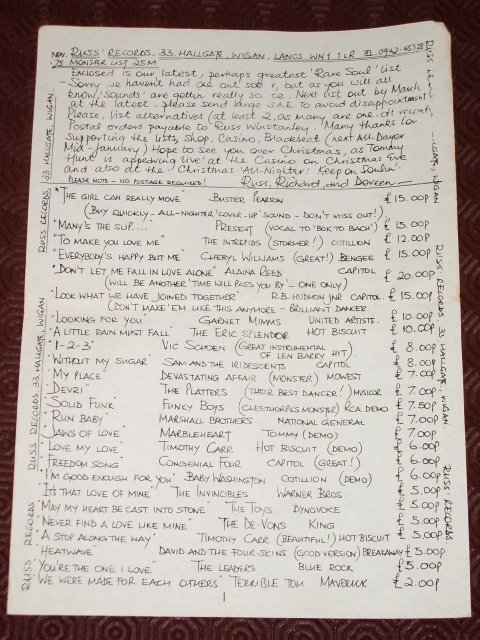 NOV. RUSS' RECORDS, 33, HALLGATE, WIGAN, LANCS WN1 1LR TEL 0942-
'75 MONSTER LIST 25M
Enclosed is our latest, perhaps greatest 'Rare Soul' list
- Sorry we haven't had one out sooner, but as you will all
know, 'Sounds' are gettin really scarce. Next list out by March
at the latest - please send large S.A.E. to avoid disappointment
Please, list alternatives (at least 2, as many are one-off records
Postal orders payable to Russ Winstanley. Many thanks for
supporting the lists, Shop, Casino, Blackpool (next All-Dayer
Mid-January) Hope to see you over Christmas, as Tommy
Hunt is appearing 'live' at the Casino on Christmas Eve
and also at the Christmas 'All-Nighter'. Keep on Soulin'.
PLEASE NOTE - NO POSTAGE REQUIRED! Russ, Richard, and Doreen
"THE GIRL CAN REALLY MOVE" BUSTER PEARSON £15.00P
(BUY QUICKLY - ALL-NIGHTER 'COVER-UP' SOUND - DON'T MISS OUT!)
"MANY'S THE SLIP...." PRESENT (VOCAL TO 'BOK TO BACH') £15.00P
"TO MAKE YOU LOVE ME" THE INTREPIDS (STORMER!) COTILLION £12.00P
"EVERYBODY'S HAPPY BUT ME" CHERYL WILLIAMS (GREAT!) BENGEE £15.00P
"DON'T LET ME FALL IN LOVE ALONE" ALAINA REED CAPITOL £20.00P
(WILL BE ANOTHER 'TIME WILL PASS YOU BY' - ONE ONLY)
"LOOK WHAT WE HAVE JOINED TOGETHER" R.B. HUDMON JNR CAPITOL £15.00P
(DON'T MAKE 'EM LIKE THIS ANYMORE - BRILLIANT DANCER
"LOOKING FOR YOU" GARNET MIMMS UNITED ARTISTS £10.00P
"A LITTLE RAIN MUST FALL" THE ERIC SPLENDOR HOT BISCUIT £10.00P
"1-2-3" VIC SCHOEN (GREAT INSTRUMENTAL OF LEN BARRY HIT) £8.00P
"WITHOUT MY SUGAR" SAM AND THE IRIDESCENTS CAPITOL £8.00P
"MY PLACE" DEVASTATING AFFAIR (MONSTER) MOWEST £7.00P
"DEVRI" THE PLATTERS (THEIR BEST DANCER!) MUSICOR £7.00P
"SOLID FUNK" FUNKY BOYS (CLEETHORPES MONSTER) RCA DEMO £7.50P
"RUN BABY" MARSHALL BROTHERS NATIONAL GENERAL £7.00P
"JAWS OF LOVE" MARBLEHEART TOMMY (DEMO) £7.00P
"LOVE MY LOVE" TIMOTHY CARR HOT BISCUIT (DEMO) £6.00P
"FREEDOM SONG" CONGENIAL FOUR CAPITOL (GREAT!) £6.00P
"I'M GOOD ENOUGH FOR YOU" BABY WASHINGTON COTILLION (DEMO) £6.00P
"IT'S THAT LOVE OF MINE" THE INVINCIBLES WARNER BROS. £5.00P
"MAY MY HEART BE CAST INTO STONE" THE TOYS DYNOVOICE £5.00P
"NEVER FIND A LOVE LIKE MINE" THE DE-VONS KING £5.00P
"A STOP ALONG THE WAY" TIMOTHY CARR (BEAUTIFUL!) HOT BISCUIT £5.00P
"HEATWAVE" DAVID AND THE FOUR-SKINS (GOOD VERSION) BREAKAWAY £5.00P
"YOU'RE THE ONE I LOVE" THE LEADERS BLUE ROCK £5.00P
"WE WERE MADE FOR EACH OTHER" TERRIBLE TOM MAVERICK £2.00P
1
RUSS RECORDS 33 HALLGATE WIGAN RUSS RECORDS 33 HALLGATE WIGAN
RUSS RECORDS, 33 HALLGATE, WIGAN RUSS RECORDS